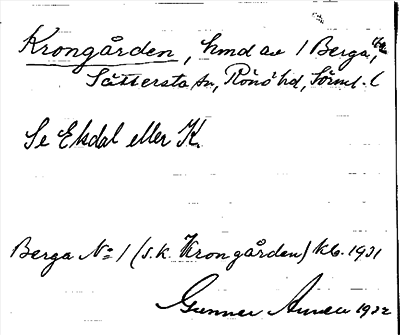 Krongården, hmd av 1 Berga,
Sättersta sn, Rönö hd, Sörml. l
Se Ekdal eller K.
Berga No 1 (s.k. Krongården) kb. 1931
Gunnar 1932